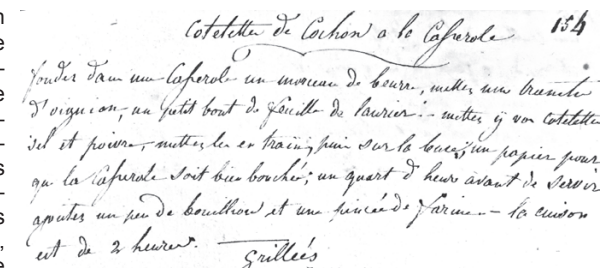 Cotelettes de Cochon a la Casserole 154
fondez dans une Casserole un morceau de beurre, mettez une tranche
d'oignion, un petit bout de feuille de laurier : mettez y vos Cotelettes
sel et poivre, mettez les en train, puis sur la buse, un papier pour
que la Casserole soit bien bouchée ; un quart d'heure avant de servir
ajoutez un peu de bouillon et une pincée de farine — la cuison
est de 2 heures.
Grilleés